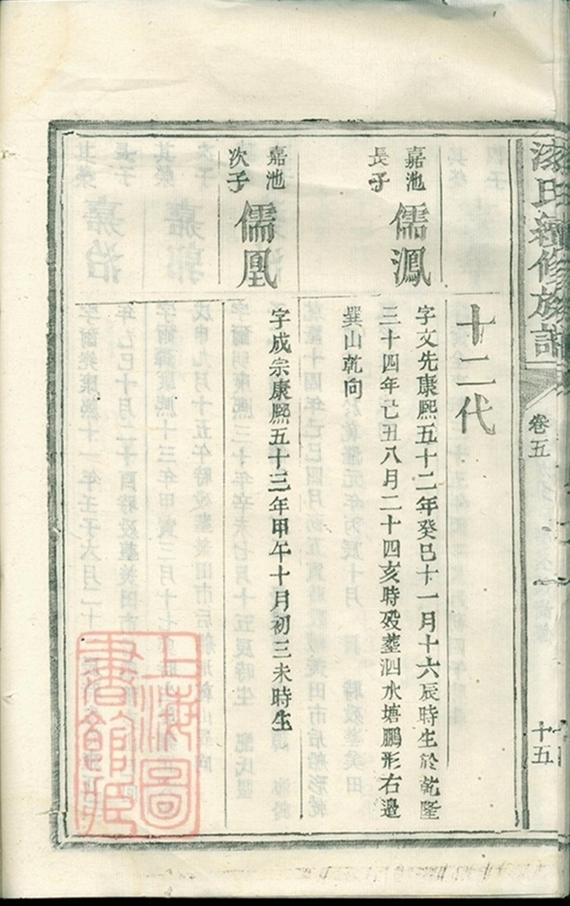 氏續修族譜
卷五
十五
十二代
嘉池
長子
儒鳳
字文先康熙五十二年癸巳十一月十六辰時生於乾隆
三十四年己丑八月二十四亥時歿塟泗水塘鵬形右邉
巽山乾向
嘉池
次子
儒凰
字成宗康熙五十三年甲午十月初三未時生
上海圖
書館藏